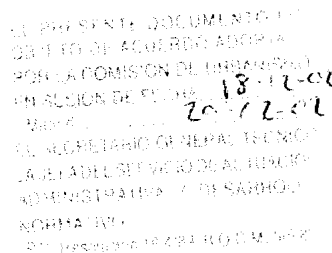 EL PRESENTE DOCUMENTO
OBJETO DE ACUERDO ADOPTA
POR LA COMISION DE URBANISMO
EN SESION DE FECHA 18-12-02
20-12-02
Madrid
EL SECRETARIO GENERAL TECNICO
LA JEFA DEL SERVICIO DE ACTUACION
ADMINISTRATIVA Y DESARROLLO
NORMATIVO